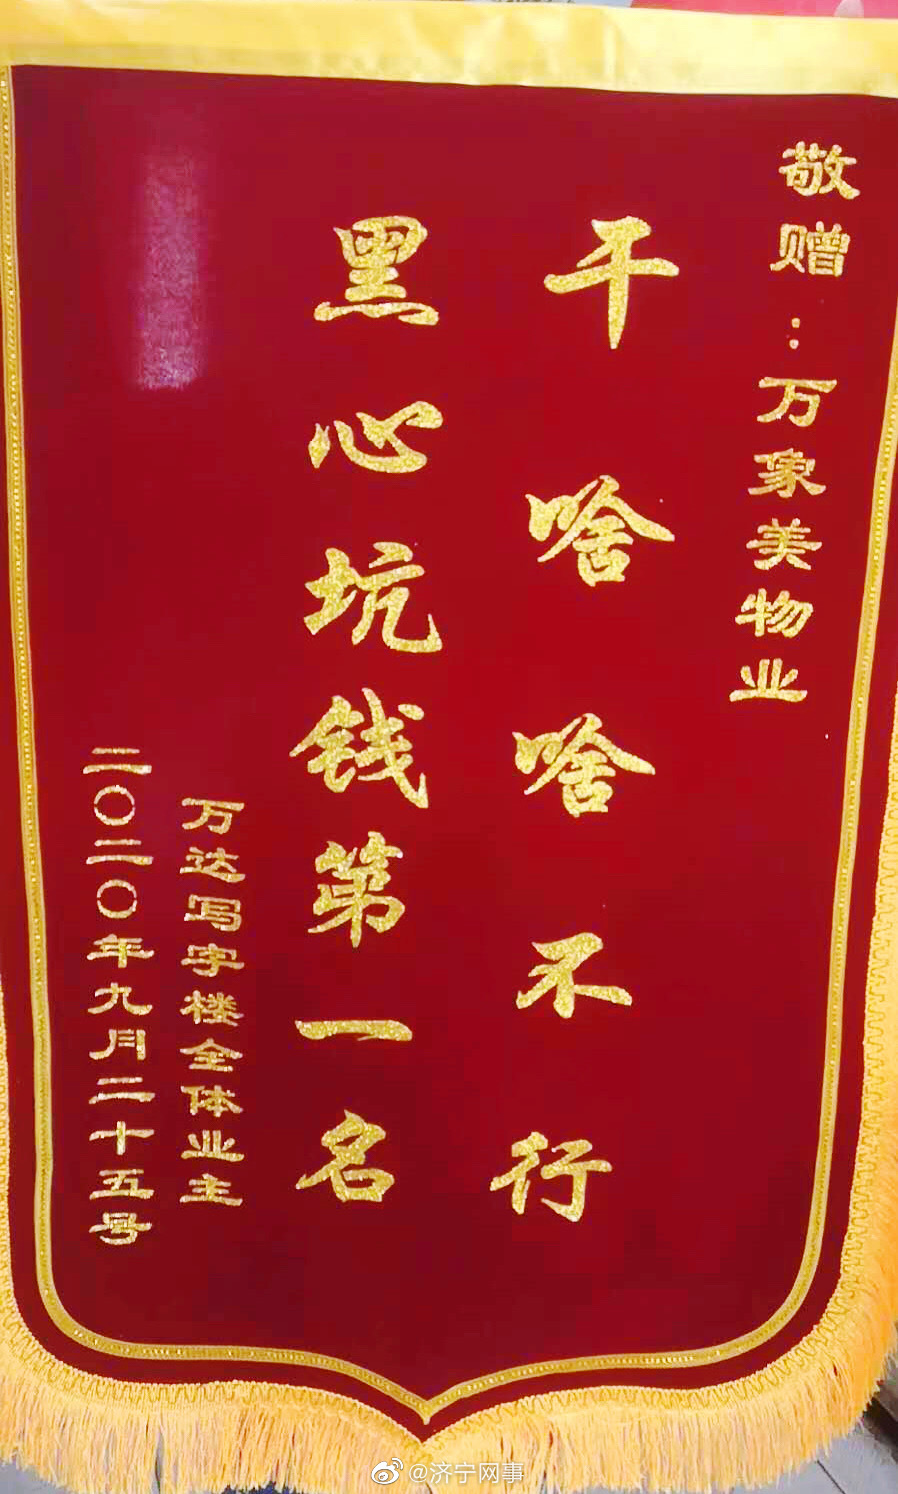 敬赠：万象美物业
干啥啥不行
黑心坑钱第一名
万达写字楼全体业主
二〇二〇年九月二十五号
@济宁网事